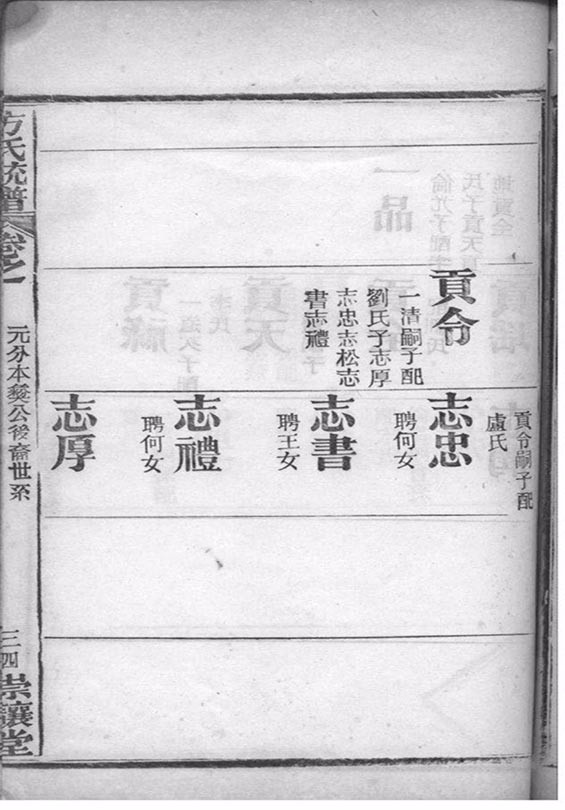 貢令
一清嗣子配
劉氏子志厚
志忠志松志
書志禮
貢令嗣子配
盧氏
志忠
聘何女
志書
聘王女
志禮
聘何女
志厚
方氏統譜
卷之一
元分本義公後裔世系
三四
崇讓堂